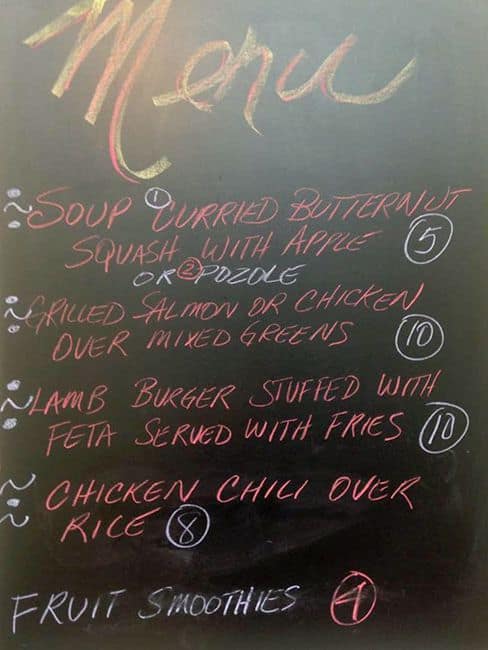 Menu
SOUP ① CURRIED BUTTERNUT
SQUASH WITH APPLE ⑤
OR ② POZOLE
GRILLED SALMON OR CHICKEN
OVER MIXED GREENS ⑩
LAMB BURGER STUFFED WITH
FETA SERVED WITH FRIES ⑩
CHICKEN CHILI OVER
RICE ⑧
FRUIT SMOOTHIES ④